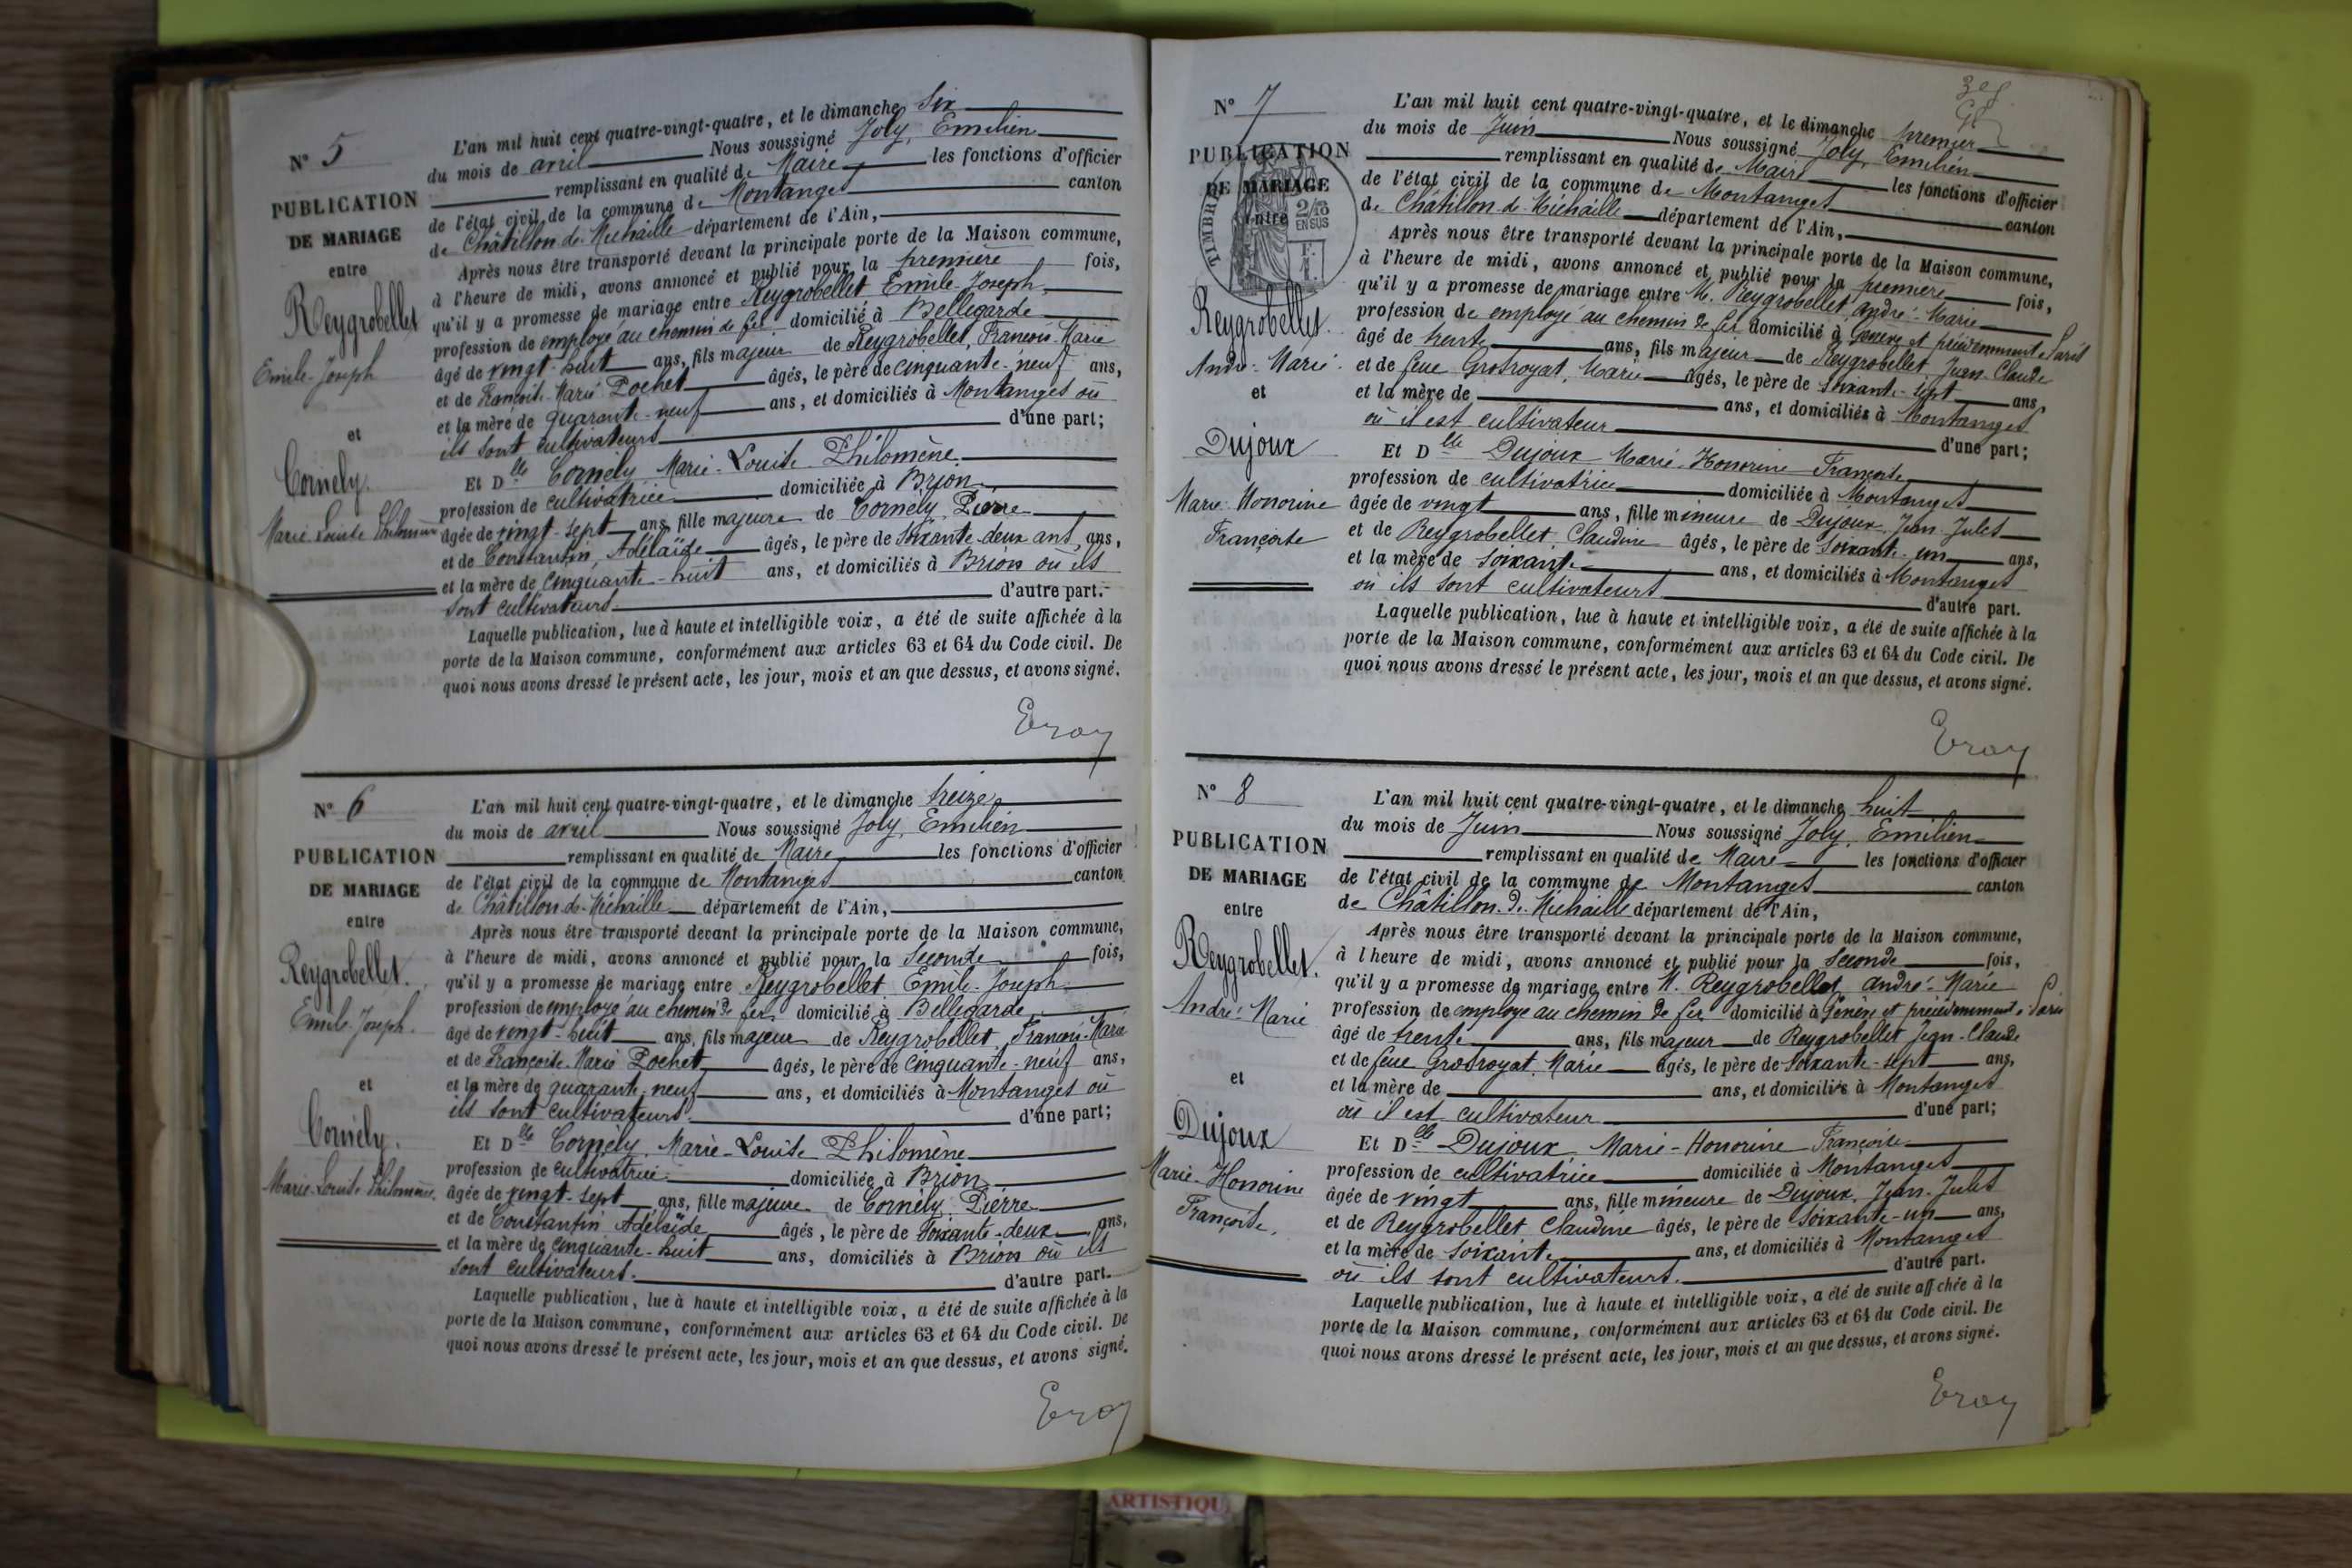 N° 5
PUBLICATION
DE MARIAGE
entre
Reygrobellet
Emile-Joseph
et
Cornély.
Marie Louise Philomène
L'an mil huit cent quatre-vingt-quatre, et le dimanche six
du mois de avril Nous soussigné Joly, Emilien
remplissant en qualité de Maire les fonctions d'officier
de l'état civil de la commune de Montanges canton
de Châtillon de Michaille département de l'Ain,
Après nous être transporté devant la principale porte de la Maison commune,
à l'heure de midi, avons annoncé et publié pour la première fois,
qu'il y a promesse de mariage entre Reygrobellet Emile-Joseph
profession de employé au chemin de fer domicilié à Bellegarde
âgé de vingt-huit ans, fils majeur de Reygrobellet, François-Marie
et de Françoise-Marie Pochet âgés, le père de cinquante-neuf ans,
et la mère de quarante-neuf ans, et domiciliés à Montanges où
ils sont cultivateurs d'une part;
Et Dlle Cornély Marie-Louise Philomène
profession de cultivatrice domiciliée à Brion
âgée de vingt-sept ans, fille majeure de Cornély Pierre
et de Constantin, Adélaïde âgés, le père de soixante-deux ans, ans,
et la mère de cinquante-huit ans, et domiciliés à Brion où ils
sont cultivateurs. d'autre part.
Laquelle publication, lue à haute et intelligible voix, a été de suite affichée à la
porte de la Maison commune, conformément aux articles 63 et 64 du Code civil. De
quoi nous avons dressé le présent acte, les jour, mois et an que dessus, et avons signé.
N° 6
PUBLICATION
DE MARIAGE
entre
Reygrobellet.
Emile-Joseph.
et
Cornély.
Marie-Louise-Philomène.
L'an mil huit cent quatre-vingt-quatre, et le dimanche treize
du mois de avril Nous soussigné Joly, Emilien
remplissant en qualité de Maire les fonctions d'officier
de l'état civil de la commune de Montanges canton
de Châtillon de Michaille département de l'Ain,
Après nous être transporté devant la principale porte de la Maison commune,
à l'heure de midi, avons annoncé et publié pour la seconde fois,
qu'il y a promesse de mariage entre Reygrobellet Emile-Joseph
profession de employé au chemin de fer domicilié à Bellegarde
âgé de vingt-huit ans, fils majeur de Reygrobellet François-Marie
et de Françoise-Marie Pochet âgés, le père de cinquante-neuf ans,
et la mère de quarante-neuf ans, et domiciliés à Montanges où
ils sont cultivateurs d'une part;
Et Dlle Cornély, Marie-Louise Philomène
profession de cultivatrice domiciliée à Brion
âgée de vingt-sept ans, fille majeure de Cornély, Pierre
et de Constantin Adélaïde âgés, le père de soixante-deux ans,
et la mère de cinquante-huit ans, domiciliés à Brion où ils
sont cultivateurs. d'autre part.
Laquelle publication, lue à haute et intelligible voix, a été de suite affichée à la
porte de la Maison commune, conformément aux articles 63 et 64 du Code civil. De
quoi nous avons dressé le présent acte, les jour, mois et an que dessus, et avons signé.
N° 7
PUBLICATION
DE MARIAGE
entre
TIMBRE
2/10
EN SUS
Reygrobellet.
André-Marie.
et
Dujoux
Marie-Honorine
Françoise
L'an mil huit cent quatre-vingt-quatre, et le dimanche premier
du mois de Juin Nous soussigné Joly, Emilien
remplissant en qualité de Maire les fonctions d'officier
de l'état civil de la commune de Montanges canton
de Châtillon de Michaille département de l'Ain,
Après nous être transporté devant la principale porte de la Maison commune,
à l'heure de midi, avons annoncé et publié pour la première fois,
qu'il y a promesse de mariage entre M. Reygrobellet André-Marie
profession de employé au chemin de fer domicilié à Genève et précédemment à Paris
âgé de trente ans, fils majeur de Reygrobellet Jean-Claude
et de feue Grosroyat, Marie âgés, le père de soixante-sept ans,
et la mère de ans, et domiciliés à Montanges
où il est cultivateur d'une part;
Et Dlle Dujoux Marie-Honorine Françoise
profession de cultivatrice domiciliée à Montanges
âgée de vingt ans, fille mineure de Dujoux, Jean-Jules
et de Reygrobellet Claudine âgés, le père de soixante-un ans,
et la mère de soixante ans, et domiciliés à Montanges
où ils sont cultivateurs d'autre part.
Laquelle publication, lue à haute et intelligible voix, a été de suite affichée à la
porte de la Maison commune, conformément aux articles 63 et 64 du Code civil. De
quoi nous avons dressé le présent acte, les jour, mois et an que dessus, et avons signé.
N° 8
PUBLICATION
DE MARIAGE
entre
Reygrobellet.
André-Marie
et
Dujoux
Marie-Honorine
Françoise.
L'an mil huit cent quatre-vingt-quatre, et le dimanche huit
du mois de Juin Nous soussigné Joly, Emilien
remplissant en qualité de Maire les fonctions d'officier
de l'état civil de la commune de Montanges canton
de Châtillon de Michaille département de l'Ain,
Après nous être transporté devant la principale porte de la Maison commune,
à l'heure de midi, avons annoncé et publié pour la seconde fois,
qu'il y a promesse de mariage entre M. Reygrobellet André-Marie
profession de employé au chemin de fer domicilié à Genève et précédemment à Paris
âgé de trente ans, fils majeur de Reygrobellet Jean-Claude
et de feue Grosroyat Marie âgés, le père de soixante-sept ans,
et la mère de ans, et domiciliés à Montanges
où il est cultivateur d'une part;
Et Dlle Dujoux, Marie-Honorine Françoise
profession de cultivatrice domiciliée à Montanges
âgée de vingt ans, fille mineure de Dujoux, Jean-Jules
et de Reygrobellet Claudine âgés, le père de soixante-un ans,
et la mère de soixante ans, et domiciliés à Montanges
où ils sont cultivateurs. d'autre part.
Laquelle publication, lue à haute et intelligible voix, a été de suite affichée à la
porte de la Maison commune, conformément aux articles 63 et 64 du Code civil. De
quoi nous avons dressé le présent acte, les jour, mois et an que dessus, et avons signé.
ARTISTIQU